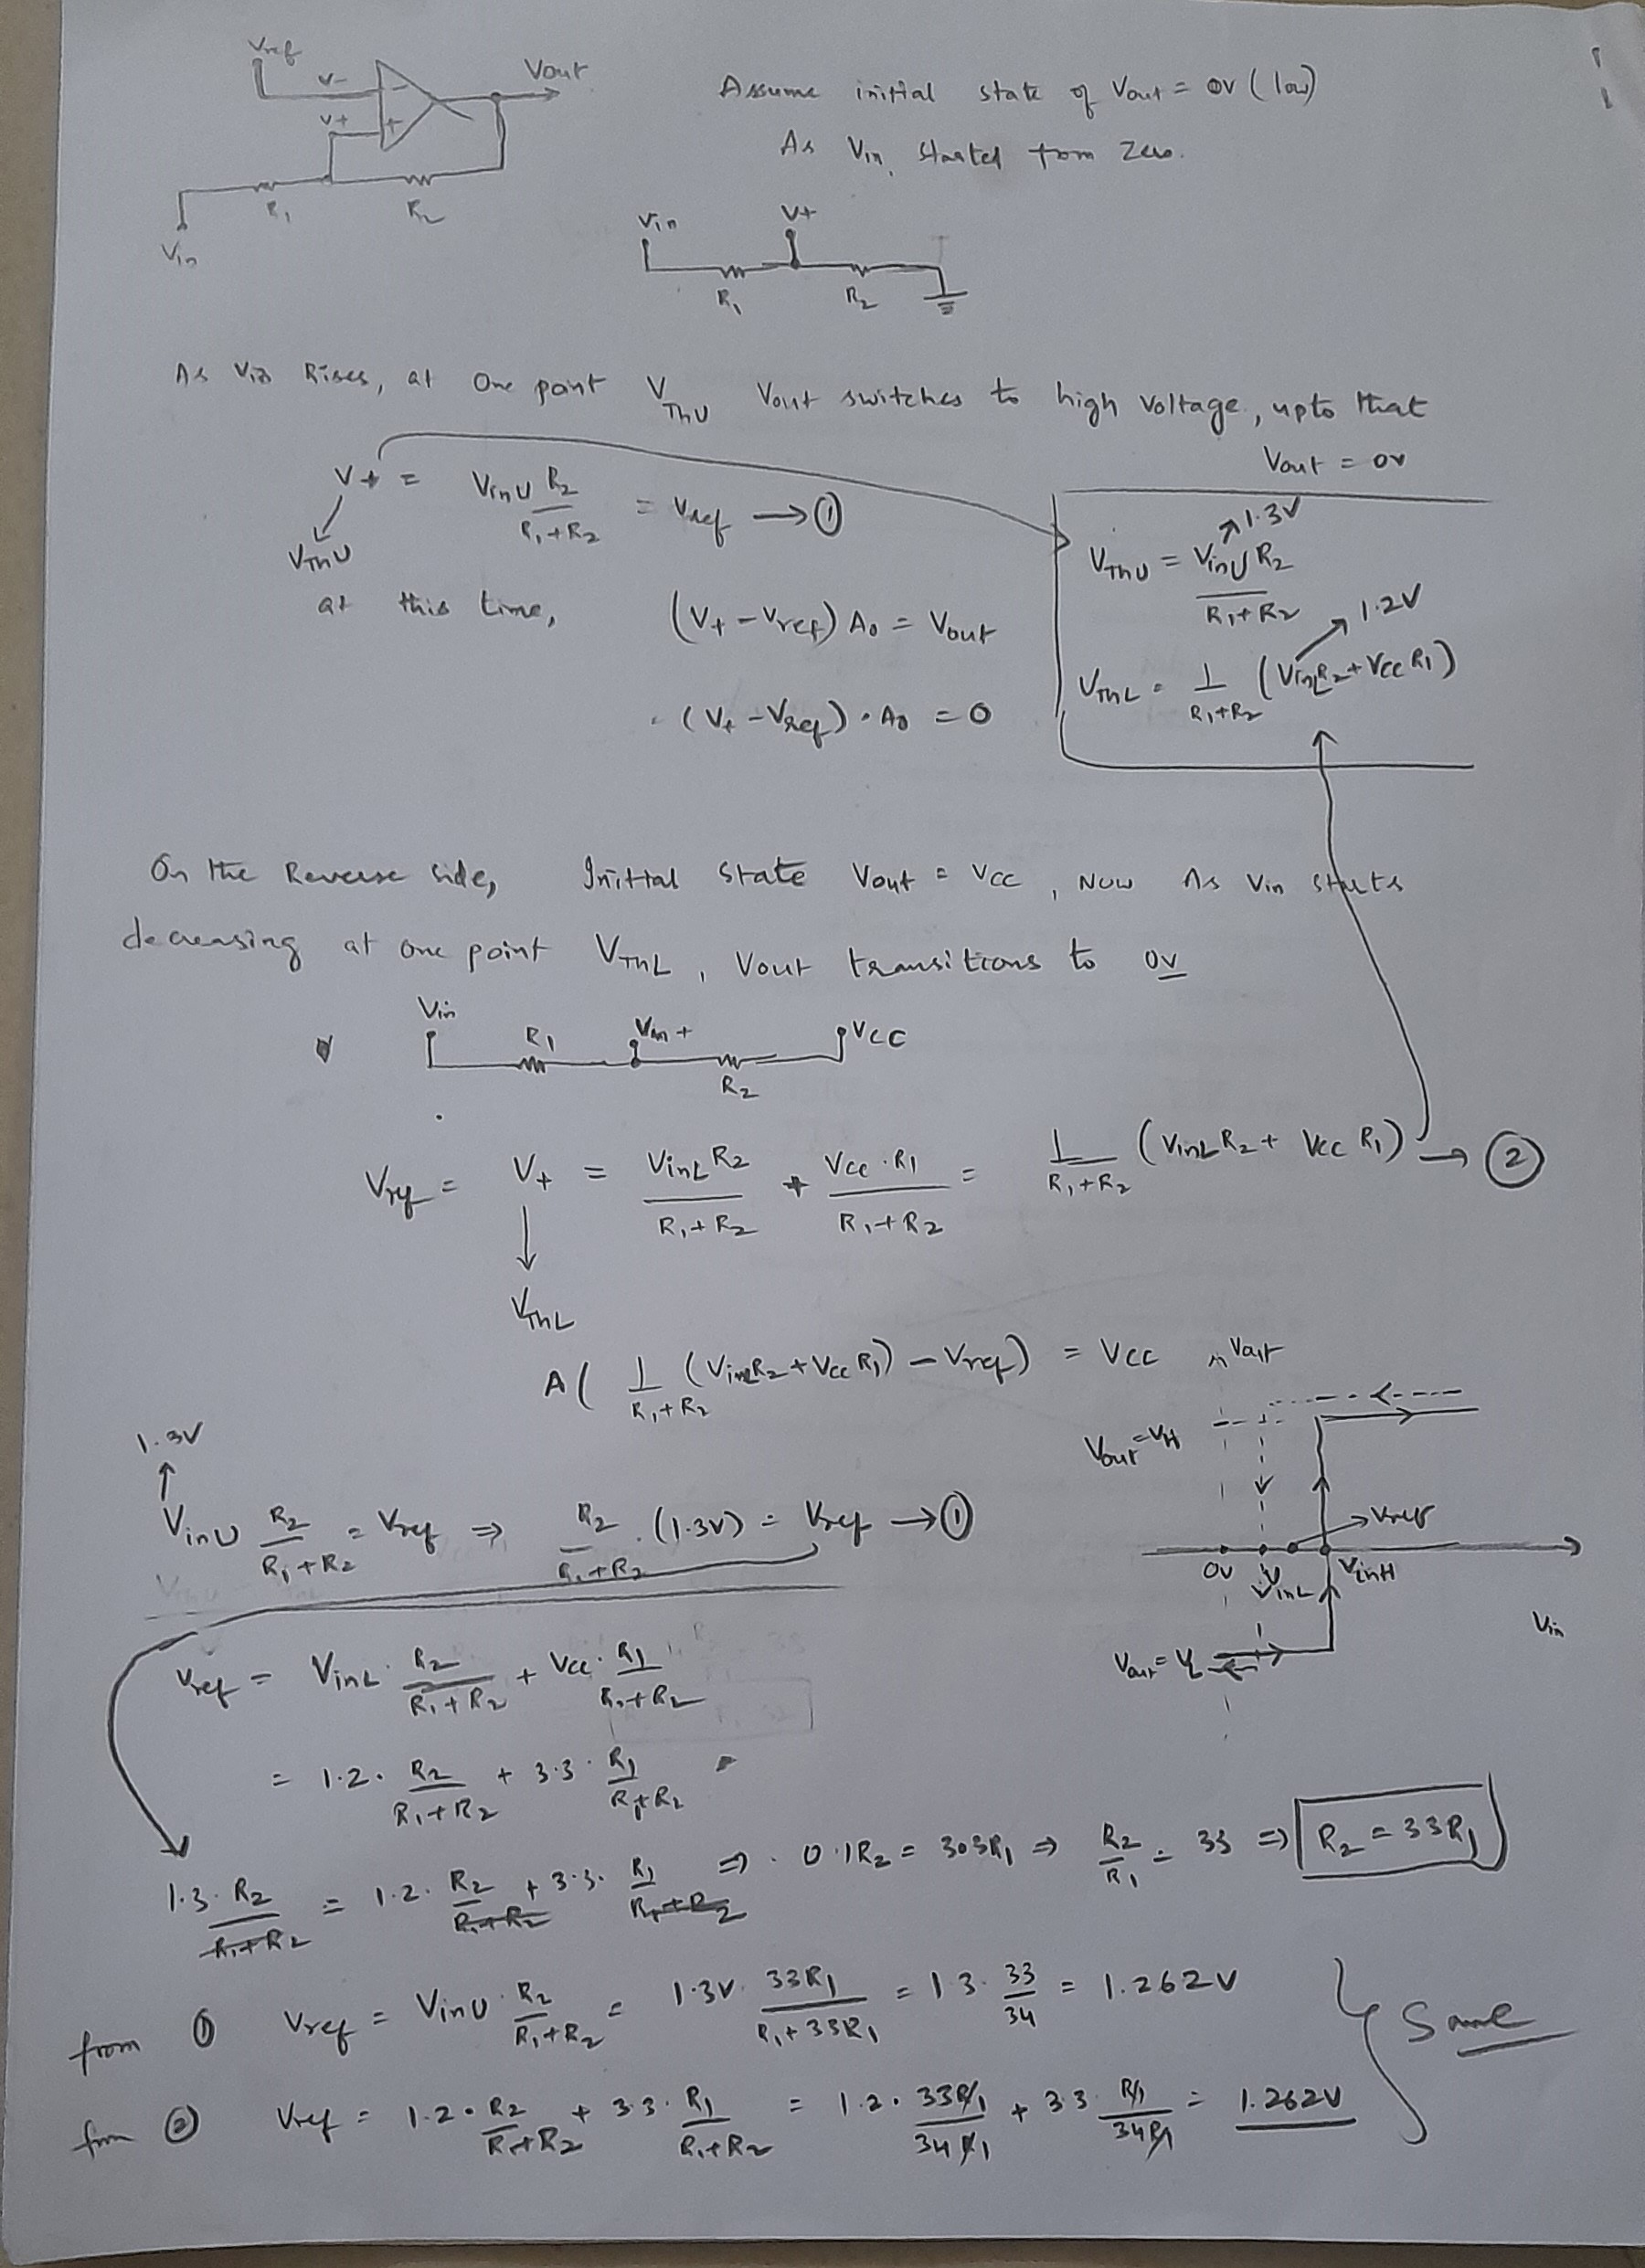 Vref
V-
Vout
V+
R1
R2
Vin
Assume initial state of Vout = 0V (low)
As Vin started from zero.
Vin
V+
R1
R2
As Vin Rises, at One point VThU Vout switches to high voltage, upto that
Vout = 0V
V+ = VinU R2 / R1+R2 = Vref → ①
VThU
at this time, (V+ - Vref) A0 = Vout
(V+ - Vref) · A0 = 0
1.3V
VThU = VinU R2 / R1+R2
1.2V
VThL = 1 / R1+R2 (VinL R2 + VCC R1)
On the Reverse side, Initial State Vout = VCC, Now As Vin starts
decreasing at one point VThL, Vout transitions to 0V
Vin
R1
Vin+
R2
VCC
Vref = V+ = VinL R2 / R1+R2 + VCC · R1 / R1+R2 = 1 / R1+R2 (VinL R2 + VCC R1) → ②
VThL
A( 1 / R1+R2 (VinL R2 + VCC R1) - Vref) = VCC
Vout
Vout = VH
Vref
0V
VinL
VinH
Vin
Vout = VL
1.3V
VinU R2 / R1+R2 = Vref ⇒ R2 / R1+R2 · (1.3V) = Vref → ①
Vref = VinL · R2 / R1+R2 + VCC · R1 / R1+R2
= 1.2 · R2 / R1+R2 + 3.3 · R1 / R1+R2
1.3 · R2 / R1+R2 = 1.2 · R2 / R1+R2 + 3.3 · R1 / R1+R2 ⇒ 0.1R2 = 303R1 ⇒ R2 / R1 = 33 ⇒ R2 = 33R1
from ① Vref = VinU · R2 / R1+R2 = 1.3V · 33R1 / R1+33R1 = 1.3 · 33 / 34 = 1.262V
from ② Vref = 1.2 · R2 / R1+R2 + 3.3 · R1 / R1+R2 = 1.2 · 33R1 / 34R1 + 3.3 · R1 / 34R1 = 1.262V
Same